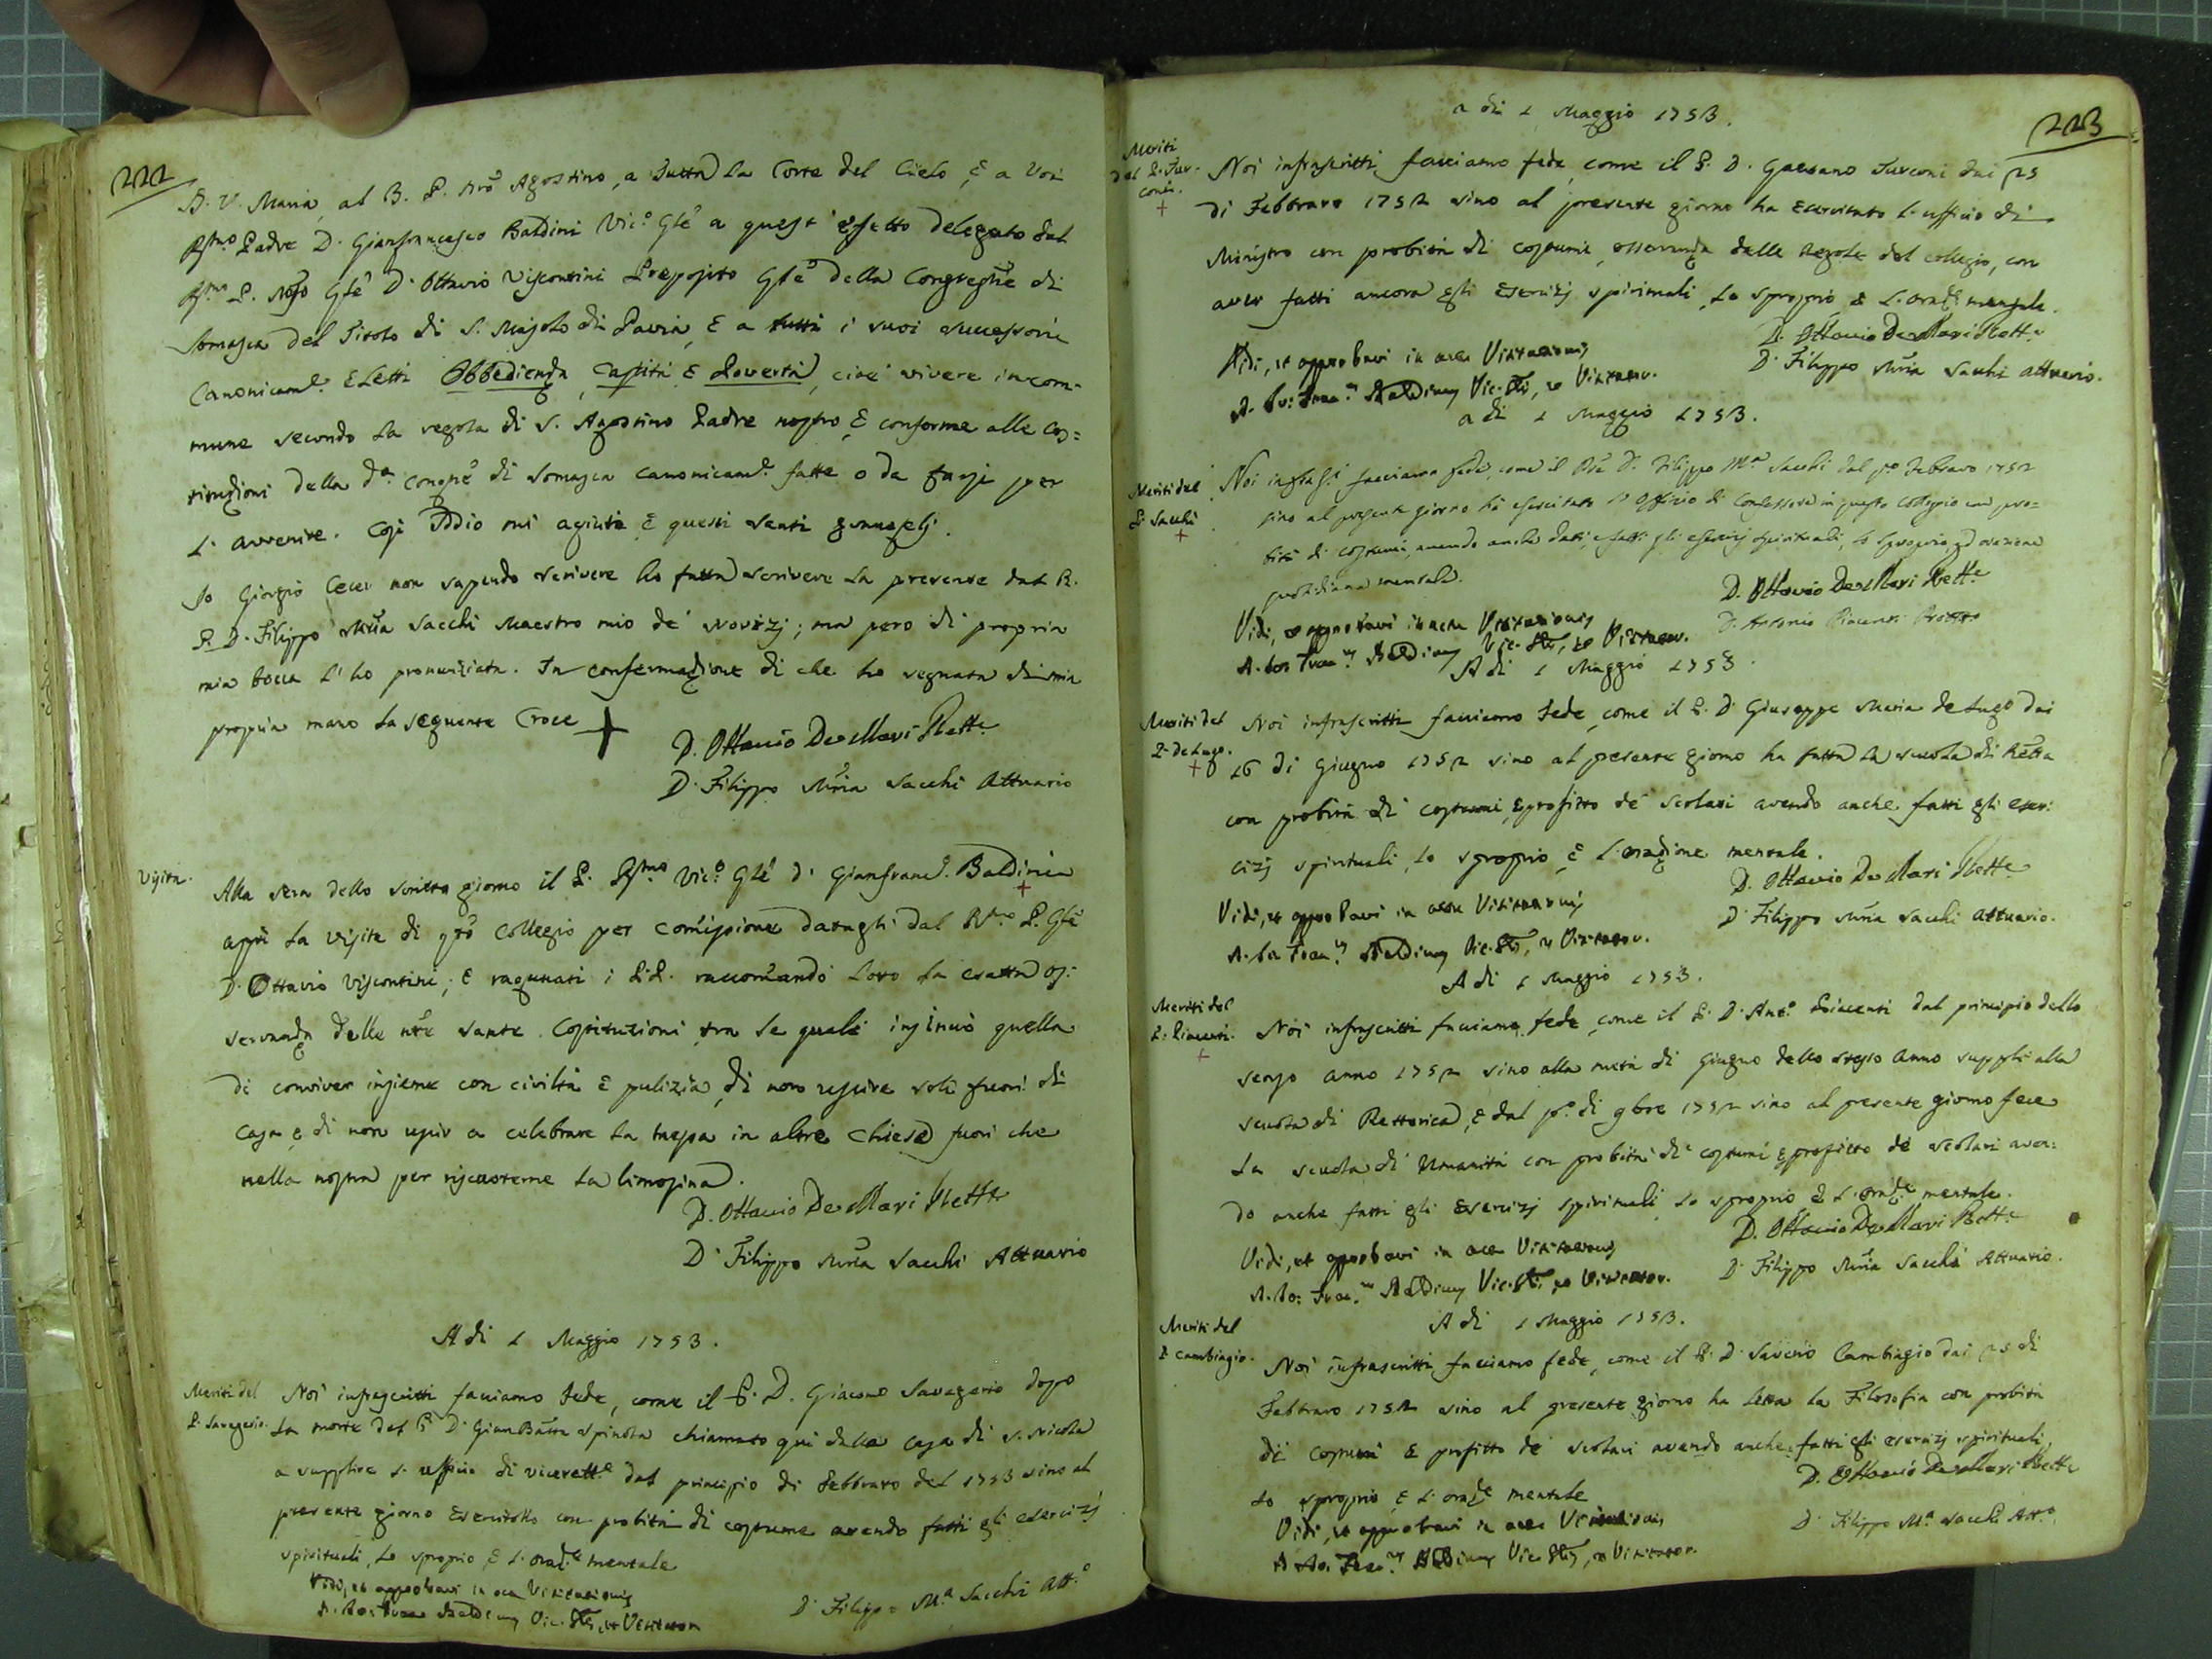 222
B. V. Maria, al B. P. nrõ Agostino, a tutta la Corte del Cielo, e a Voi
Rmo Padre D. Gianfrancesco Baldini Vic.º Glẽ a quest' effetto delegato dal
Rmo P. nrõ Glẽ D. Ottavio Viscontini Preposito Glẽ della Congreghe di
Somasca del Titolo di S. Majolo di Pavia, e a tutti i suoi successori
Canonicam.e eletti Obbedienza, Castità e Povertà, cioè vivere in com-
mune secondo la regola di S. Agostino Padre nostro, e conforme alle Cos=
tituzioni della d.a Congne di Somasca canonicam.e fatte o da farsi per
l'avvenire. Così Iddio mi agiuti, e questi santi Evangelj.
Io Giorgio Ceci non sapendo scrivere ho fatta scrivere la presente dal R.
P. D. Filippo Mria Sacchi Maestro mio de' Novizj; ma però di propria
mia bocca l'ho pronunziata. In confermazione di che ho segnata di mia
propria mano la seguente Croce +
D. Ottavio De Mari Rett.e
D. Filippo Mria Sacchi Attuario
Visita.
Alla sera dello scritto giorno il P. Rmo Vic.º Glẽ D. Gianfranc.º Baldini
aprì la visita di qto Collegio per comissione datagli dal Rmo P. Glẽ
D. Ottavio Viscontini; e ragunati i P.P. raccomandò loro la esatta os:
servanza delle nrẽ sante Costituzioni tra le quali insinuò quella
di conviver insieme con civiltà e pulizia, di non uscire soli fuori di
casa e di non uscir a celebrare la messa in altre Chiese fuori che
nella nostra per riscuoterne la limosina.
D. Ottavio De Mari Rett.e
D. Filippo Mria Sacchi Attuario
A di 1 Maggio 1753.
Meriti del
P. Savagerio.
Noi infrascritti facciamo fede, come il P. D. Giacomo Savagerio dopo
la morte del P. D. GianBatta Spinola chiamato qui dalla casa di S. Nicola
a supplire l'ufficio di vicerett.e dal principio di Febbraro del 1753 sino al
presente giorno esercitollo con probità di costume avendo fatti gli esercizj
spirituali, lo sproprio, e l'oraz.e mentale
Vidi, et approbavi in actu Visitationis
D. Jo: Franc. Baldinus Vic. Glis, et Visitator
D. Filippo M.a Sacchi Att.º
223
a di 1 Maggio 1753.
Meriti
del P. Tur-
coni.
+
Noi infrascritti facciamo fede, come il P. D. Gaetano Turconi dai 25
di Febbraro 1752 sino al presente giorno ha esercitato l'ufficio di
Ministro con probità di costumi, osservanza delle Regole del collegio, con
aver fatti ancora gli esercizj spirituali, lo sproprio e l'oraz.e mentale.
D. Ottavio De Mari Rett.e
D. Filippo Mria Sacchi Attuario.
Vidi, et approbavi in actu Visitationis
D. Jo: Franc.us Baldinus Vic. Glis, et Visitator.
a di 1 Maggio 1753.
Meriti del
P. Sacchi
+
Noi infrasti facciamo fede, come il Pre D. Filippo M.a Sacchi dal p.º Febbraro 1752
sino al presente giorno hà esercitato l'Offizio di Confessore in questo Collegio con pro=
bità di costumi, avendo anche dati, e fatti gli esercizj spirituali, lo sproprio, ed orazione
quotidiana mentale.
D. Ottavio De Mari Rett.e
D. Antonio Piacenti
Vidi, et approbavi in actu Visitationis
D. Jo: Franc.us Baldinus Vic. Glis, et Visitator.
A di 1 Maggio 1753.
Meriti del
P. De Lugo.
+
Noi infrascritti facciamo fede, come il P. D. Giuseppe Maria de Lugo dai
16 di Giugno 1752 sino al presente giorno ha fatta la scuola di Retta
con probità di costumi e profitto de' scolari avendo anche fatti gli eser:
cizj spirituali, lo sproprio, e l'orazione mentale.
D. Ottavio De Mari Rett.e
D. Filippo Mria Sacchi Attuario.
Vidi, et approbavi in actu Visitationis
D. Jo: Franc.us Baldinus Vic. Glis, et Visitator.
A di 1 Maggio 1753.
Meriti del
P. Piacenti.
+
Noi infrascritti facciamo fede, come il P. D. Ant.º Piacenti dal principio dello
scorso anno 1752 sino alla metà di Giugno dello stesso anno supplì alla
scuola di Rettorica, e dal p.º di 9bre 1752 sino al presente giorno fece
la scuola di Umanità con probità di costumi e profitto de' scolari aven:
do anche fatti gli esercizj spirituali, lo sproprio e l'oraz.e mentale.
D. Ottavio De Mari Rett.e
D. Filippo Mria Sacchi Attuario.
Vidi, et approbavi in actu Visitationis
D. Jo: Franc.us Baldinus Vic. Glis, et Visitator.
A di 1 Maggio 1753.
Meriti del
P. Cambiagio.
Noi infrascritti facciamo fede, come il P. D. Saverio Cambiagio dai 25 di
Febbraro 1752 sino al presente giorno ha letta la Filosofia con probità
di costumi e profitto de' scolari avendo anche fatti gli esercizj spirituali,
lo sproprio, e l'oraz.e mentale
D. Ottavio De Mari Rett.e
D. Filippo M.a Sacchi Att.º
Vidi, et approbavi in actu Visitationis
D. Jo: Franc.us Baldinus Vic. Glis, et Visitator.